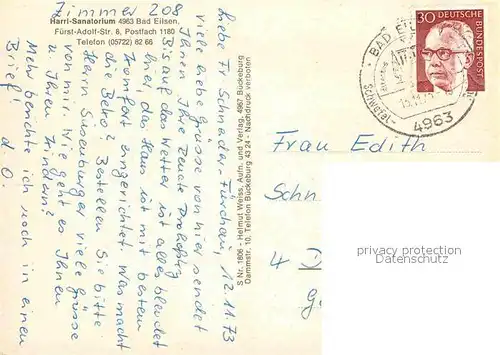 Zimmer 208
Harri-Sanatorium 4963 Bad Eilsen,
Fürst-Adolf-Str. 8, Postfach 1180
Telefon (05722) 82 66
12.11.73
Liebe Fr. Schnader-Fürchau,
viele liebe Grüsse von hier sendet
Ihnen Ihre Renate
Bis auf das Wetter ist alles blendet
hier, das Haus ist mit bestem
Komfort eingerichtet. Was macht
die Beko? Bestellen Sie bitte
Herrn Susenburger viele Grüsse
von mir. Wie geht es Ihnen
u. Ihren Kindern?
Mehr berichte ich noch in einen
Brief!
d. O.
S Nr. 1806 - Helmut Weiss, Aufn. und Verlag, 4967 Bückeburg
Dammstr. 10, Telefon Bückeburg 43 24 - Nachdruck verboten
30 DEUTSCHE
BUNDESPOST
BAD
4963
Frau Edith
Schn
4
privacy protection